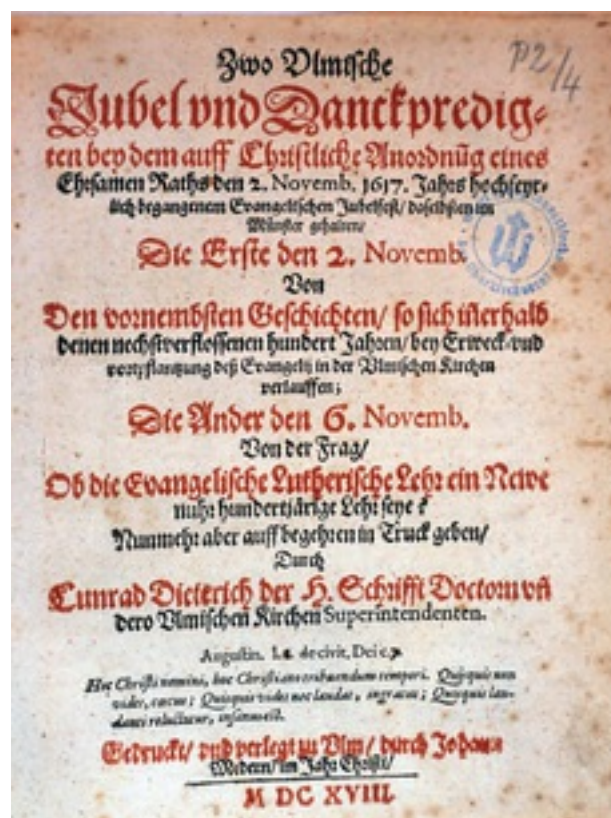 P2/4
Zwo Vlmische
Jubel vnd Danckpredig-
ten bey dem auff Christliche Anordnũg eines
Ehrsamen Raths den 2. Novemb. 1617. Jahrs hochfeyr-
lich begangenem Evangelischen Jubelfest/ daselbsten im
Münster gehalten/
Die Erste den 2. Novemb.
Von
Den vornembsten Geschichten/ so sich iñerhalb
denen nechstverflossenen hundert Jahren/ bey Erweck- vnd
vortpflantzung deß Evangelij in der Vlmischen Kirchen
verlauffen;
Die Ander den 6. Novemb.
Von der Frag/
Ob die Evangelische Lutherische Lehr ein Newe
nuhr hundertjärige Lehr seye?
Nunmehr aber auff begehren in Truck geben/
Durch
Cunrad Dieterich der H. Schrifft Doctorn vñ
dero Vlmischen Kirchen Superintendenten.
Augustin. l. 1. de civit. Dei c. 7.
Hoc Christi nomini, hoc Christiano tribuendum tempori. Quisquis non
videt, cæcus; Quisquis videt nec laudat, ingratus; Quisquis lau-
danti reluctatur, insanus est.
Gedruckt/ vnd verlegt zu Vlm/ durch Johann
Medern/ im Jahr Christi/
M DC XVIII.